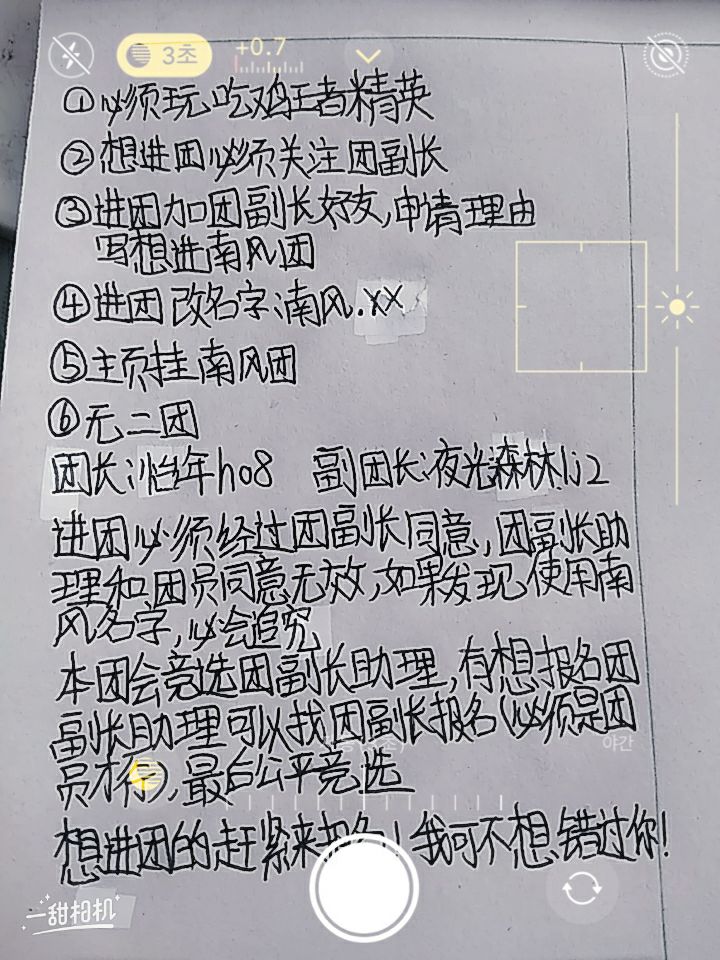 3초
+0.7
①必须玩吃鸡王者精英
②想进团必须关注团副长
③进团加团副长好友,申请理由
写想进南风团
④进团改名字:南风.xx
⑤主页挂南风团
⑥无二团
团长:怡年ho8 副团长:夜光森林li2
进团必须经过团副长同意,团副长助
理和团员同意无效,如果发现使用南
风名字,必会追究
本团会竞选团副长助理,有想报名团
副长助理可以找团副长报名(必须是团
야간
员才行),最后公平竞选
想进团的赶紧来报名!我可不想错过你!
一甜相机